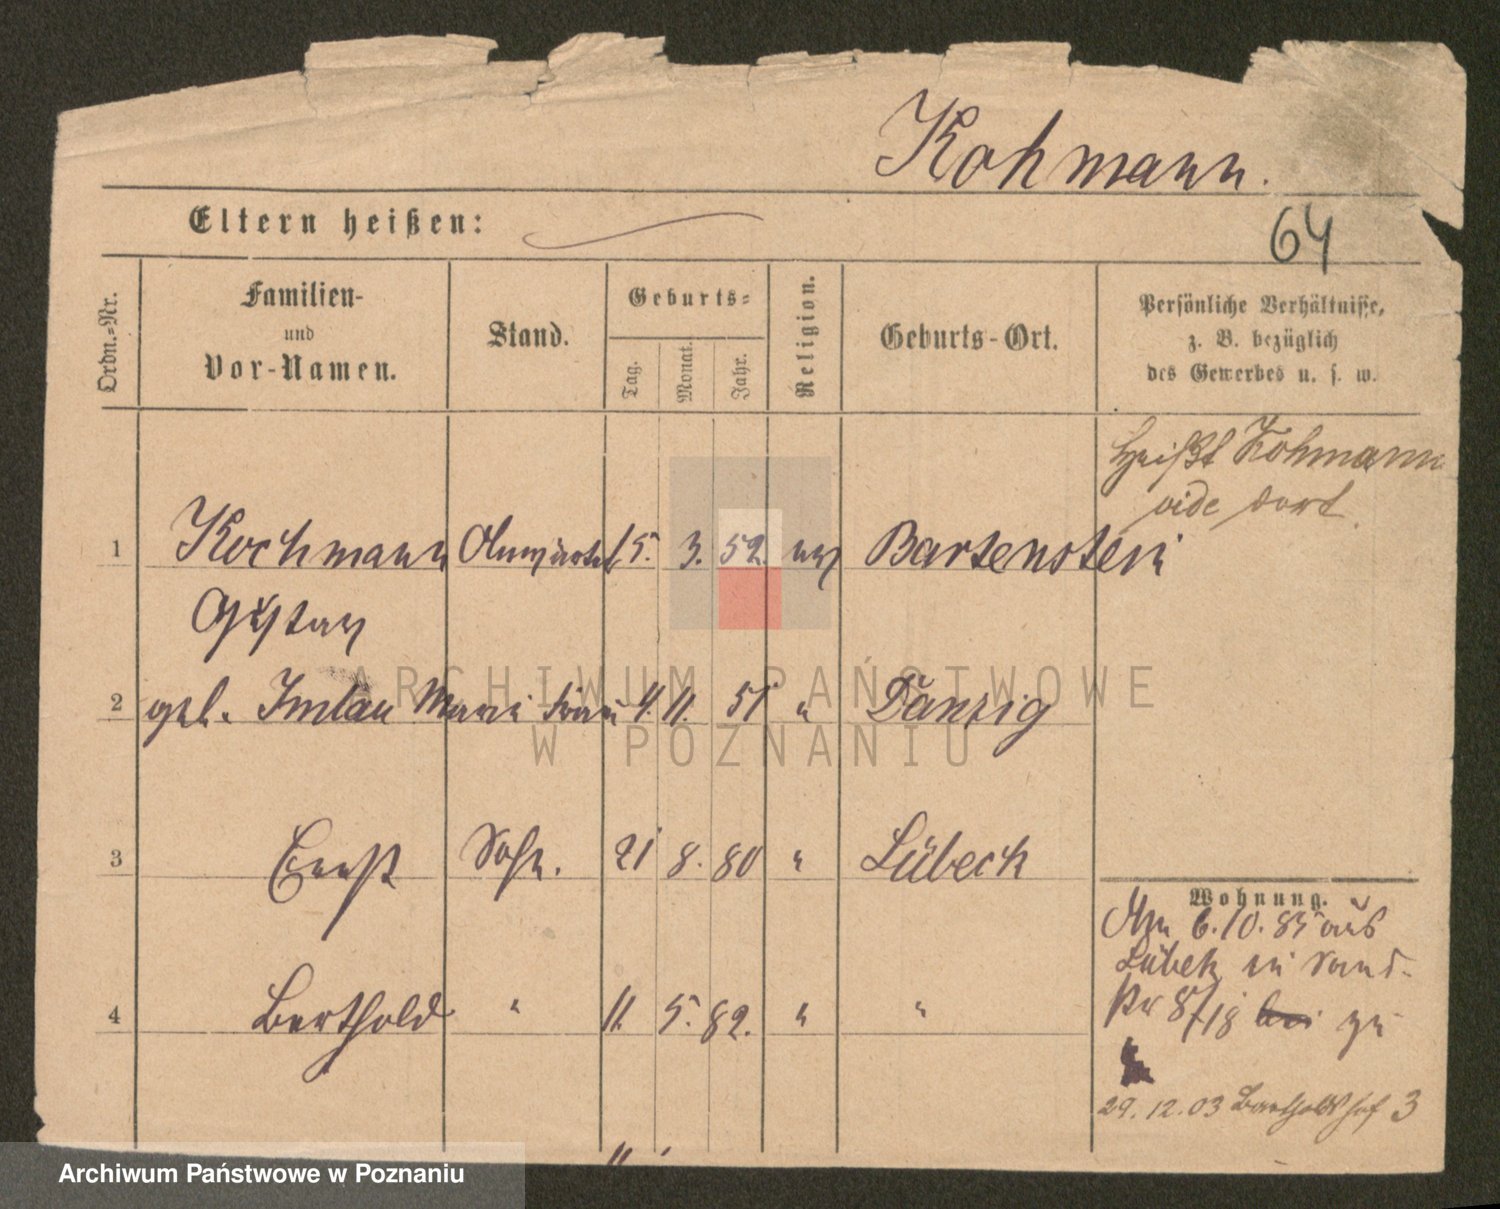 Kohmann.
Eltern heißen:
64
Ordn.-Nr.
Familien-
und
Vor-Namen.
Stand.
Geburts-
Tag.
Monat.
Jahr.
Religion.
Geburts-Ort.
Persönliche Verhältnisse,
z. B. bezüglich
des Gewerbes u. s. w.
Heißt Kohmann
vide dort.
1 Kochmann 15. 3. 52. Bartenstein
Gustav
2 geb. Imlau Marie Frau 4. 11. 51 " Danzig
3 Ernst Sohn. 21 8. 80 " Lübeck
4 Berthold " 11. 5. 82. " "
Wohnung.
6.10.85 aus
Lübeck in Sand-
str 8/18 bei zu
29.12.03 3
ARCHIWUM PAŃSTWOWE
W POZNANIU
Archiwum Państwowe w Poznaniu